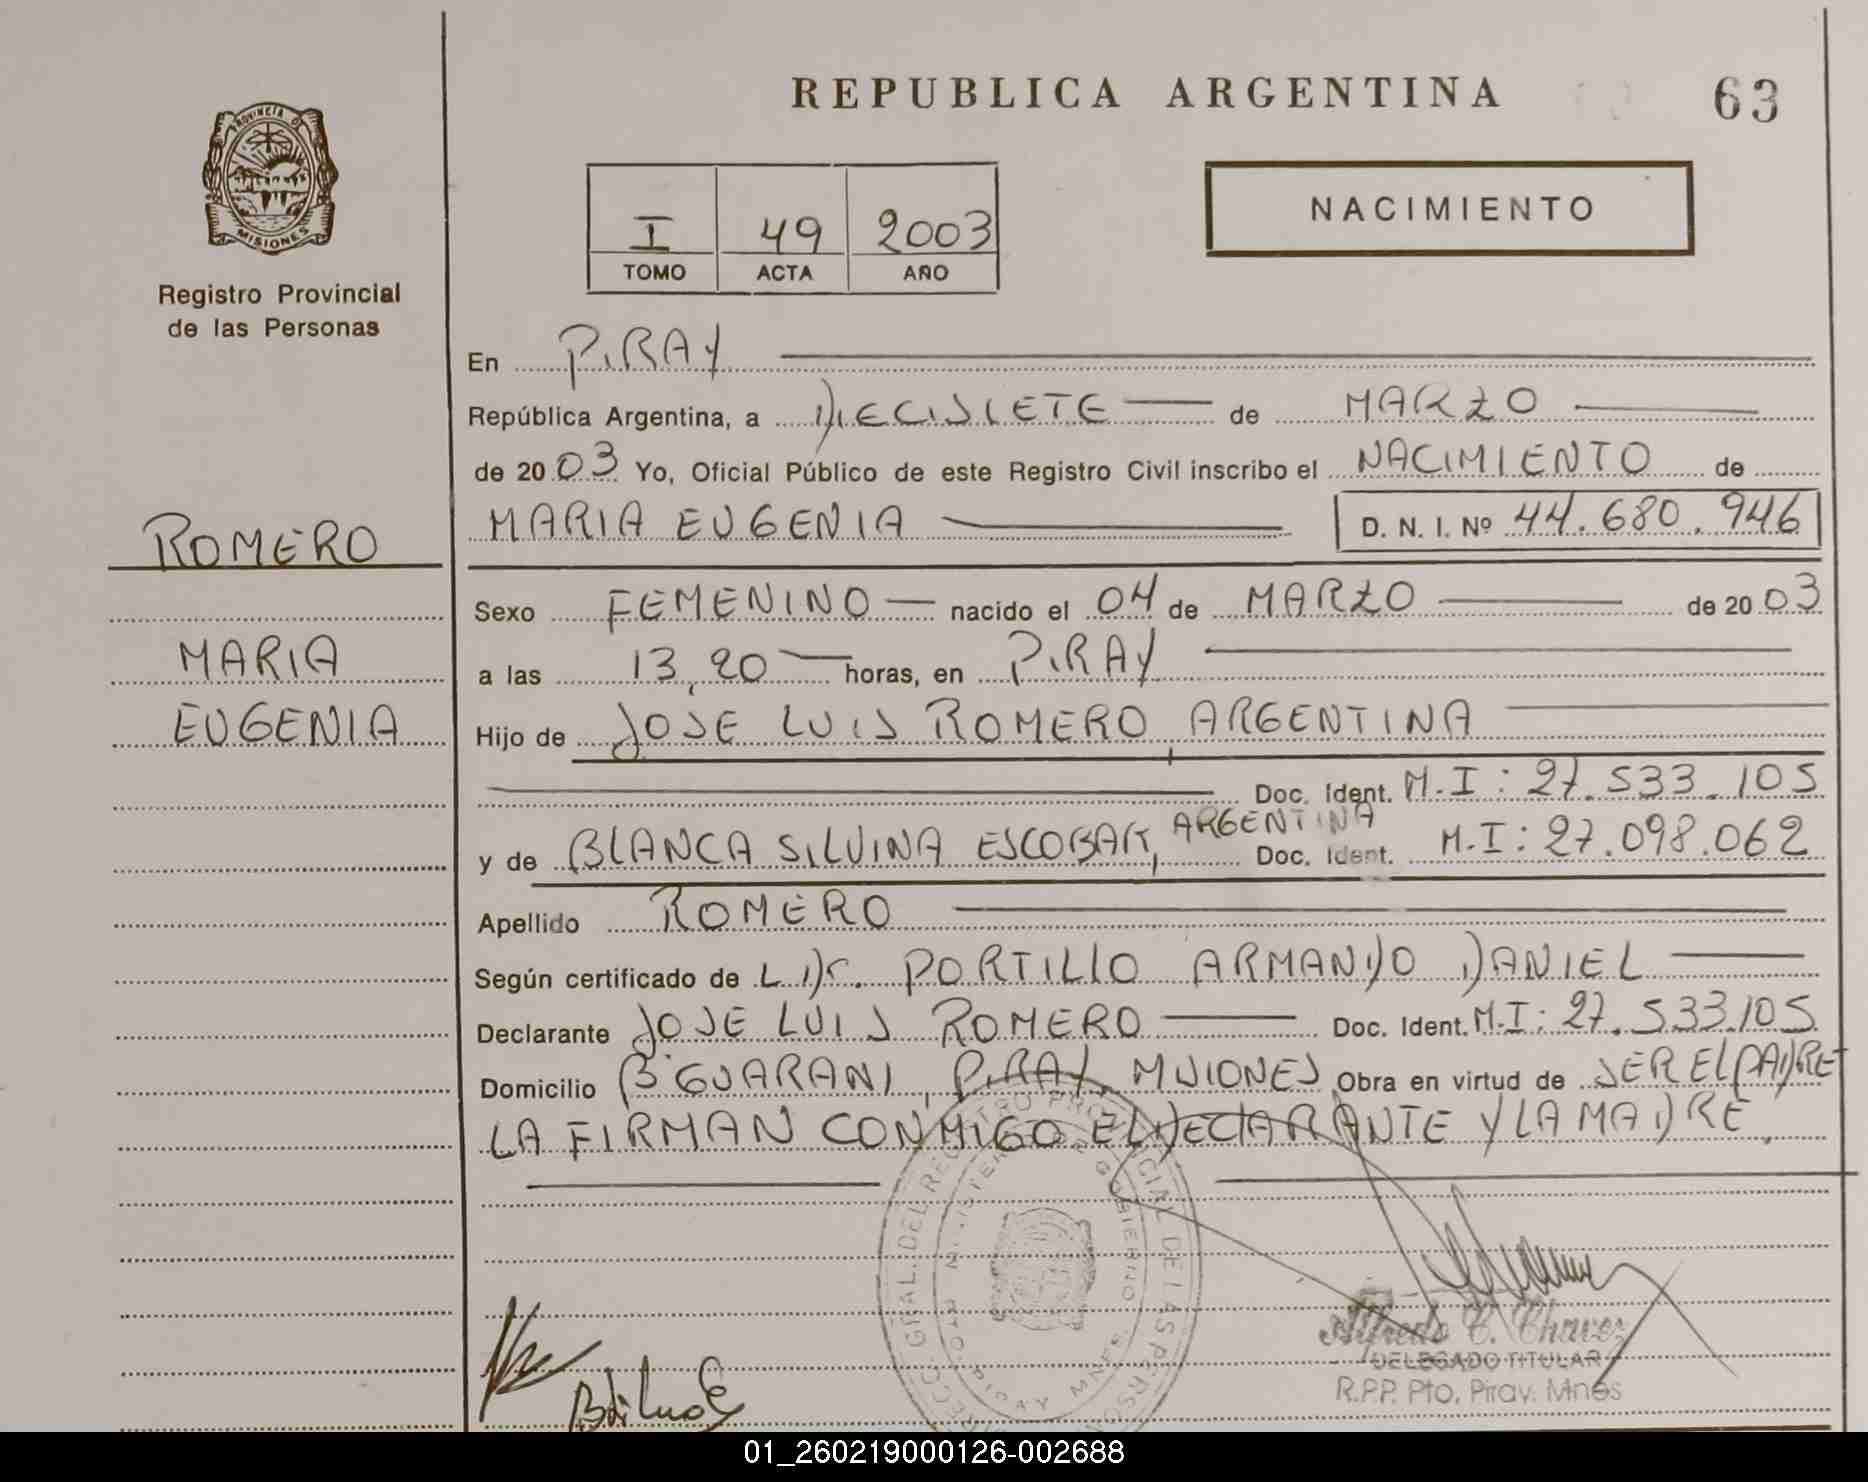 REPUBLICA ARGENTINA
63
PROVINCIA DE
MISIONES
Registro Provincial
de las Personas
I 49 2003
TOMO ACTA AÑO
NACIMIENTO
En PIRAY
República Argentina, a DIECISIETE de MARZO
de 2003 Yo, Oficial Público de este Registro Civil inscribo el NACIMIENTO de
MARIA EUGENIA D. N. I. Nº 44.680.946
ROMERO
MARIA
EUGENIA
Sexo FEMENINO nacido el 04 de MARZO de 2003
a las 13,20 horas, en PIRAY
Hijo de JOSE LUIS ROMERO, ARGENTINA
Doc. Ident. M.I: 27.533.105
y de BLANCA SILVINA ESCOBAR, ARGENTINA Doc. Ident. M.I: 27.098.062
Apellido ROMERO
Según certificado de L Dr. PORTILLO ARMANDO DANIEL
Declarante JOSE LUIS ROMERO Doc. Ident. M.I: 27.533.105
Domicilio Bº GUARANI, PIRAY, MISIONES Obra en virtud de SER EL PADRE
LA FIRMAN CONMIGO EL DECLARANTE Y LA MADRE.
DIRECC. GRAL. DEL REGISTRO PROVINCIAL DE LAS PERSO
MINISTERIO DE GOBIERNO
MNES
Alfredo C. Chavez
DELEGADO TITULAR
R.P.P. Pto. Piray. Mnes
01_260219000126-002688